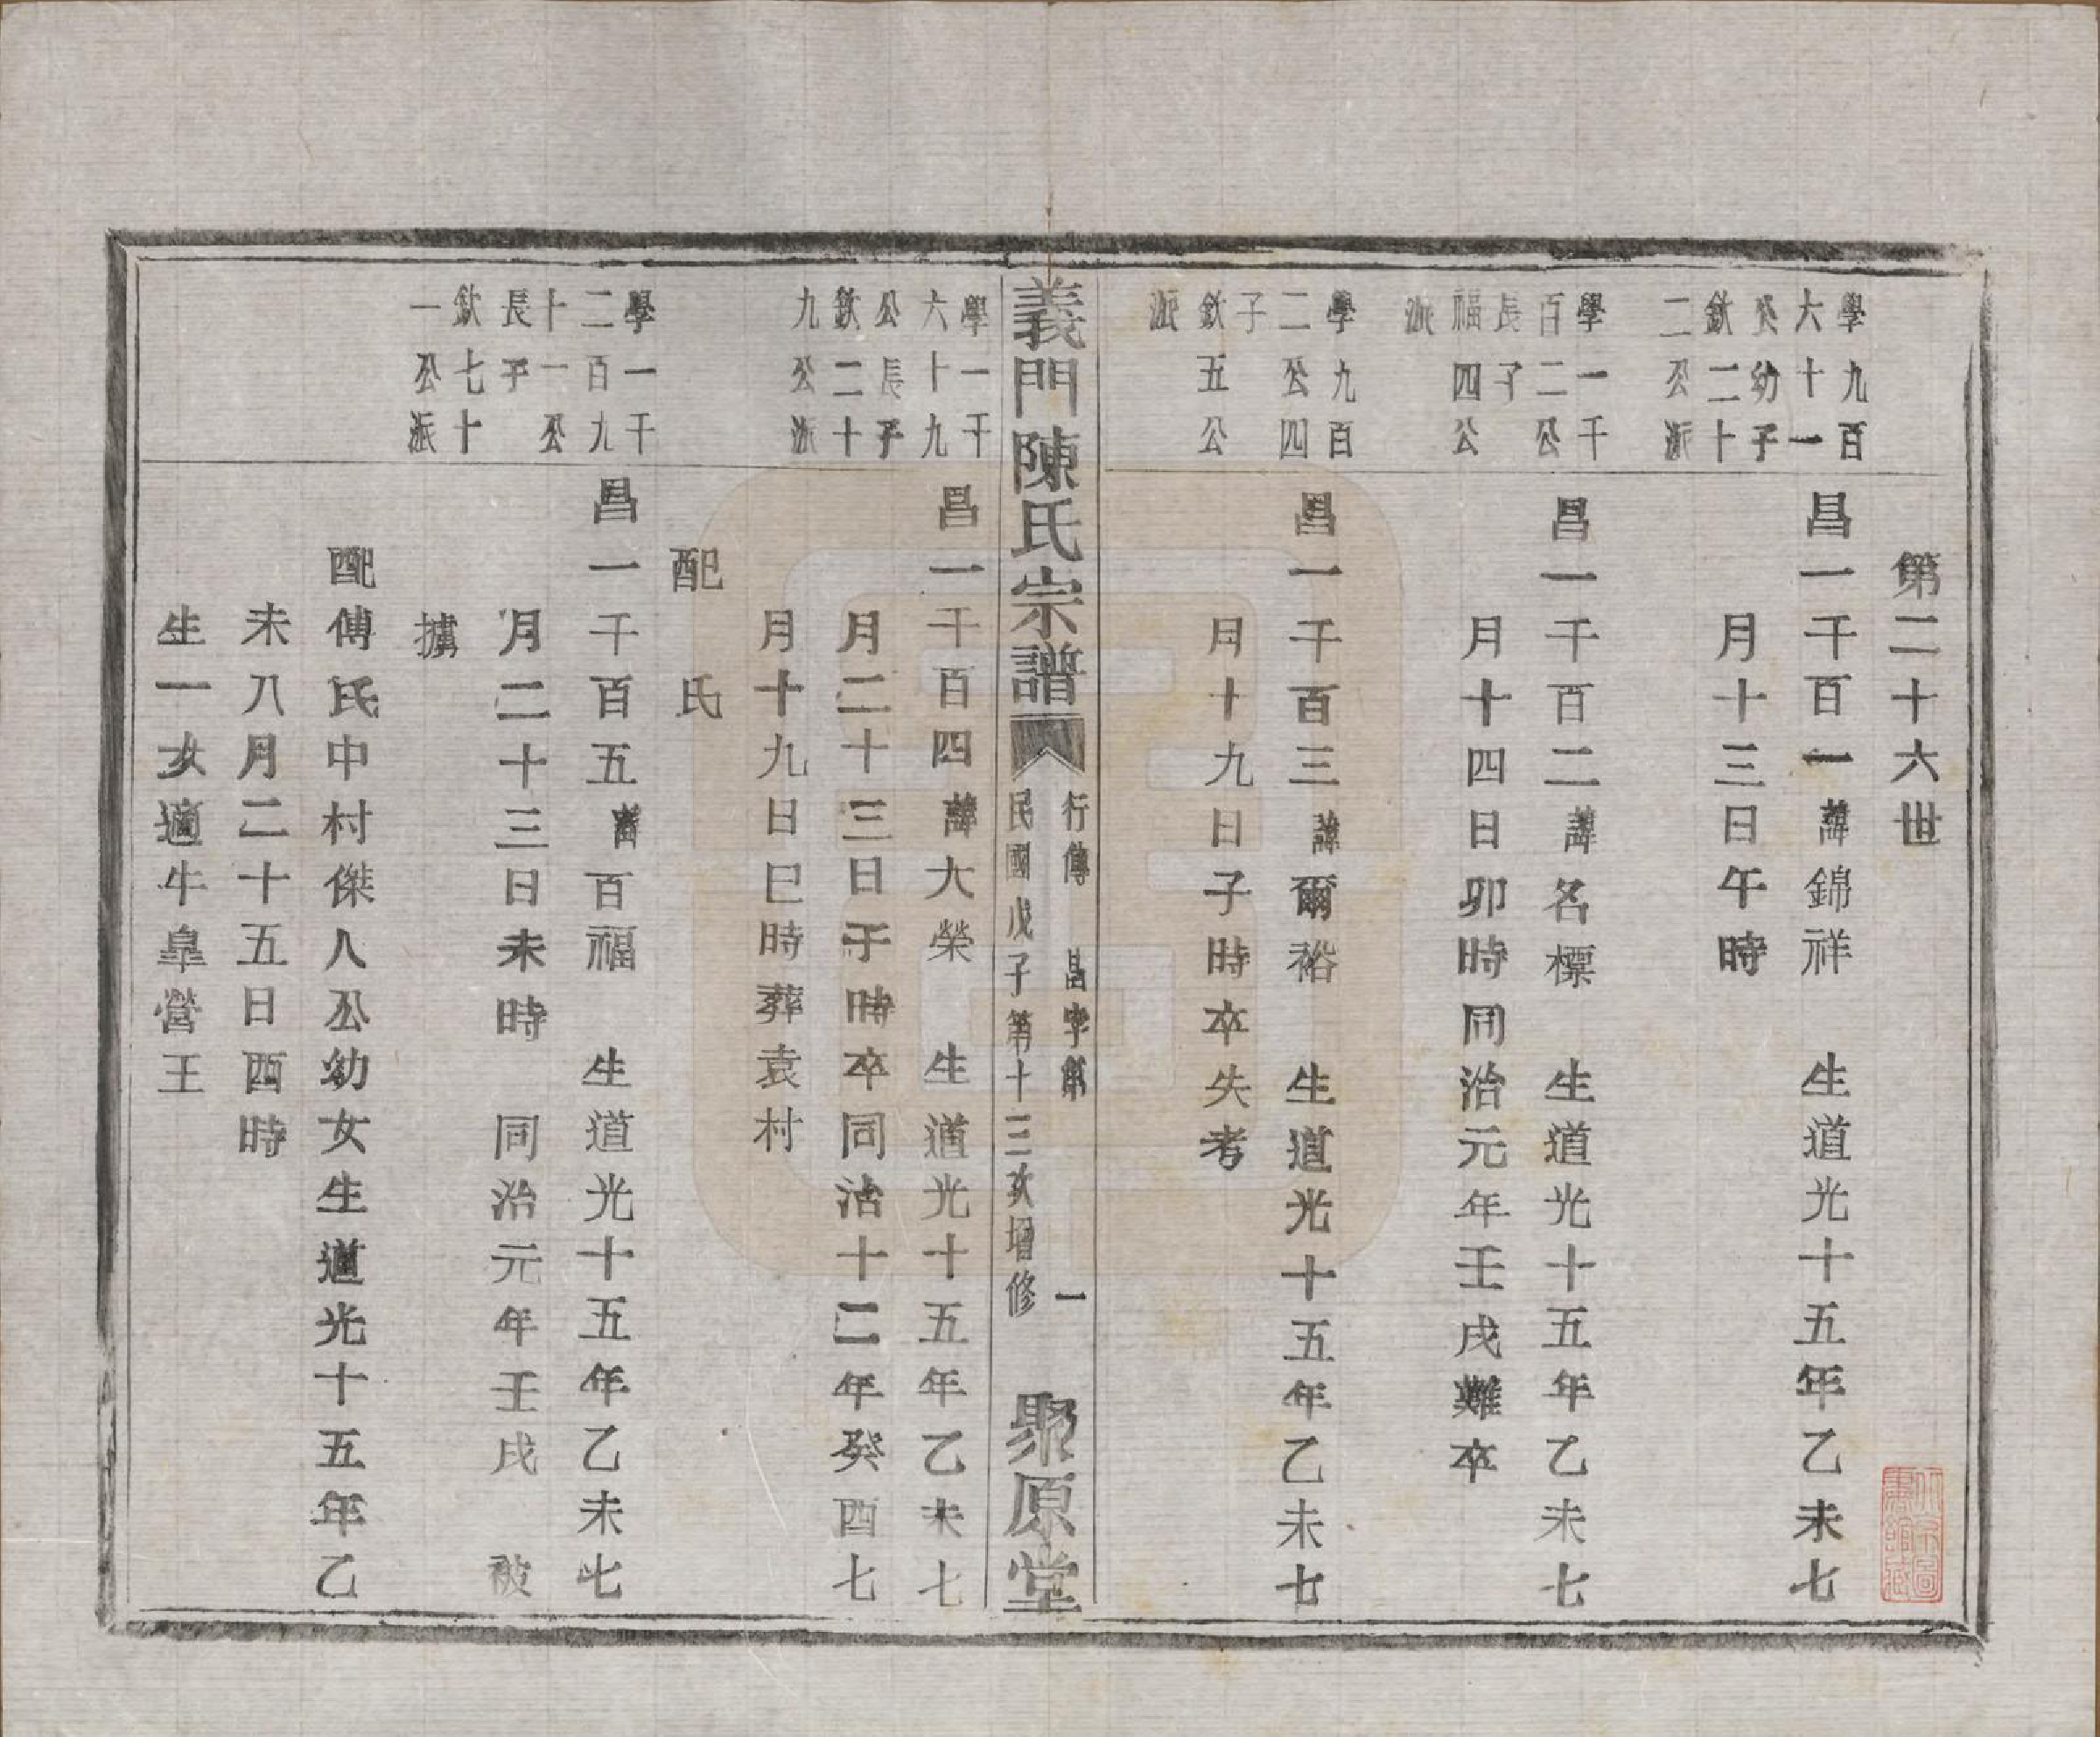 第二十六世
學九百
六十一
癸幼子
欽二十
二公派
昌一千百一諱錦祥　生道光十五年乙未七
月十三日午時
學一千
百二公
長子
福四公
派
昌一千百二諱名標　生道光十五年乙未七
月十四日卯時同治元年壬戌難卒
學九百
二公四
子
欽五公
派
昌一千百三諱爾裕　生道光十五年乙未七
月十九日子時卒失考
義門陳氏宗譜
行傳　昌字第　一
民國戊子第十三次增修
聚原堂
學一千
六十九
公長子
欽二十
九公派
昌一千百四諱大榮　生道光十五年乙未七
月二十三日子時卒同治十二年癸酉七
月十九日巳時葬袁村
配　氏
學一千
二百九
十一公
長子
欽七十
一公派
昌一千百五諱百福　生道光十五年乙未七
月二十三日未時　同治元年壬戌　被
擄
配傅氏中村傑人公幼女生道光十五年乙
未八月二十五日酉時
生一女適牛皐營王